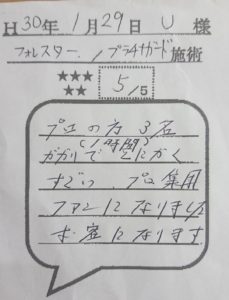 H30年1月29日 U 様
フォレスター / プラチナガード 施術
★★★
★★
5/5
プロの方 3名
(1時間)
がかりで とにかく
すごい プロ集団
ファンになりました
お客になります